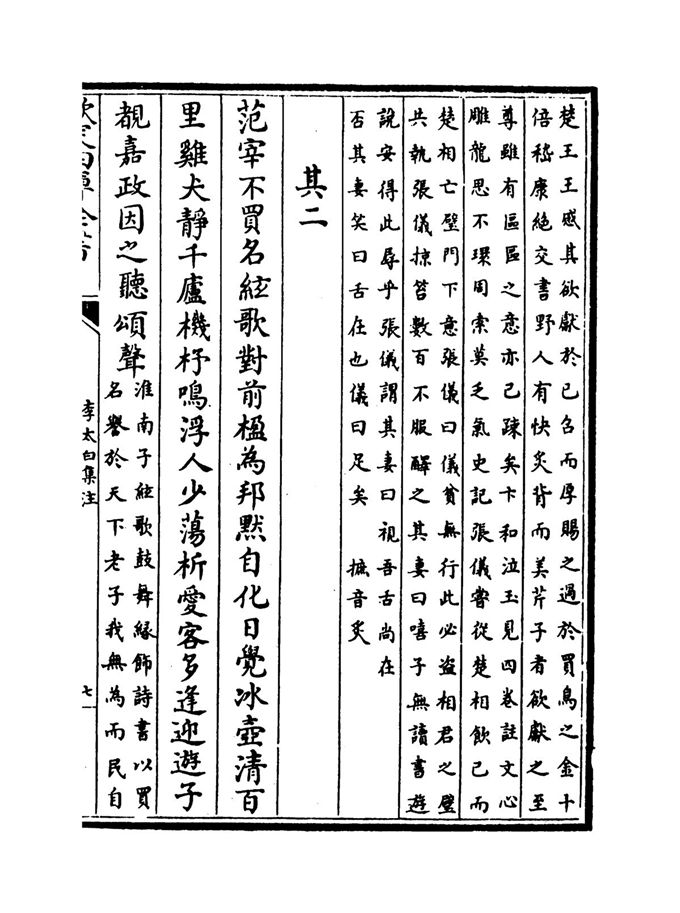 楚王王感其欲獻於己召而厚賜之過於買鳥之金十
倍嵇康絕交書野人有快炙背而美芹子者欲獻之至
尊雖有區區之意亦已疎矣卞和泣玉見四卷註文心
雕龍思不環周索莫乏氣史記張儀嘗從楚相飲已而
楚相亡璧門下意張儀曰儀貧無行此必盗相君之璧
共執張儀掠笞數百不服醳之其妻曰嘻子無讀書遊
說安得此辱乎張儀謂其妻曰視吾舌尚在
否其妻笑曰舌在也儀曰足矣 摭音炙
其二
范宰不買名絃歌對前楹為邦黙自化日覺冰壺清百
里雞犬靜千廬機杼鳴浮人少蕩析愛客多逢迎遊子
覩嘉政因之聽頌聲
淮南子絃歌鼓舞緣飾詩書以買
名譽於天下老子我無為而民自
李太白集注
七